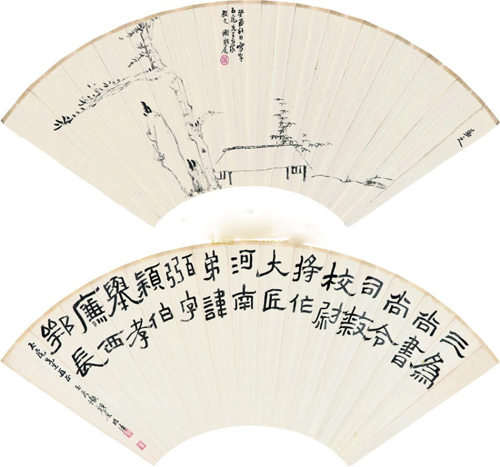 三為
尚書
尚令
司隸
校尉
將作
大匠
河南
弟諱
弼字
穎伯
舉孝
廉西
鄂長